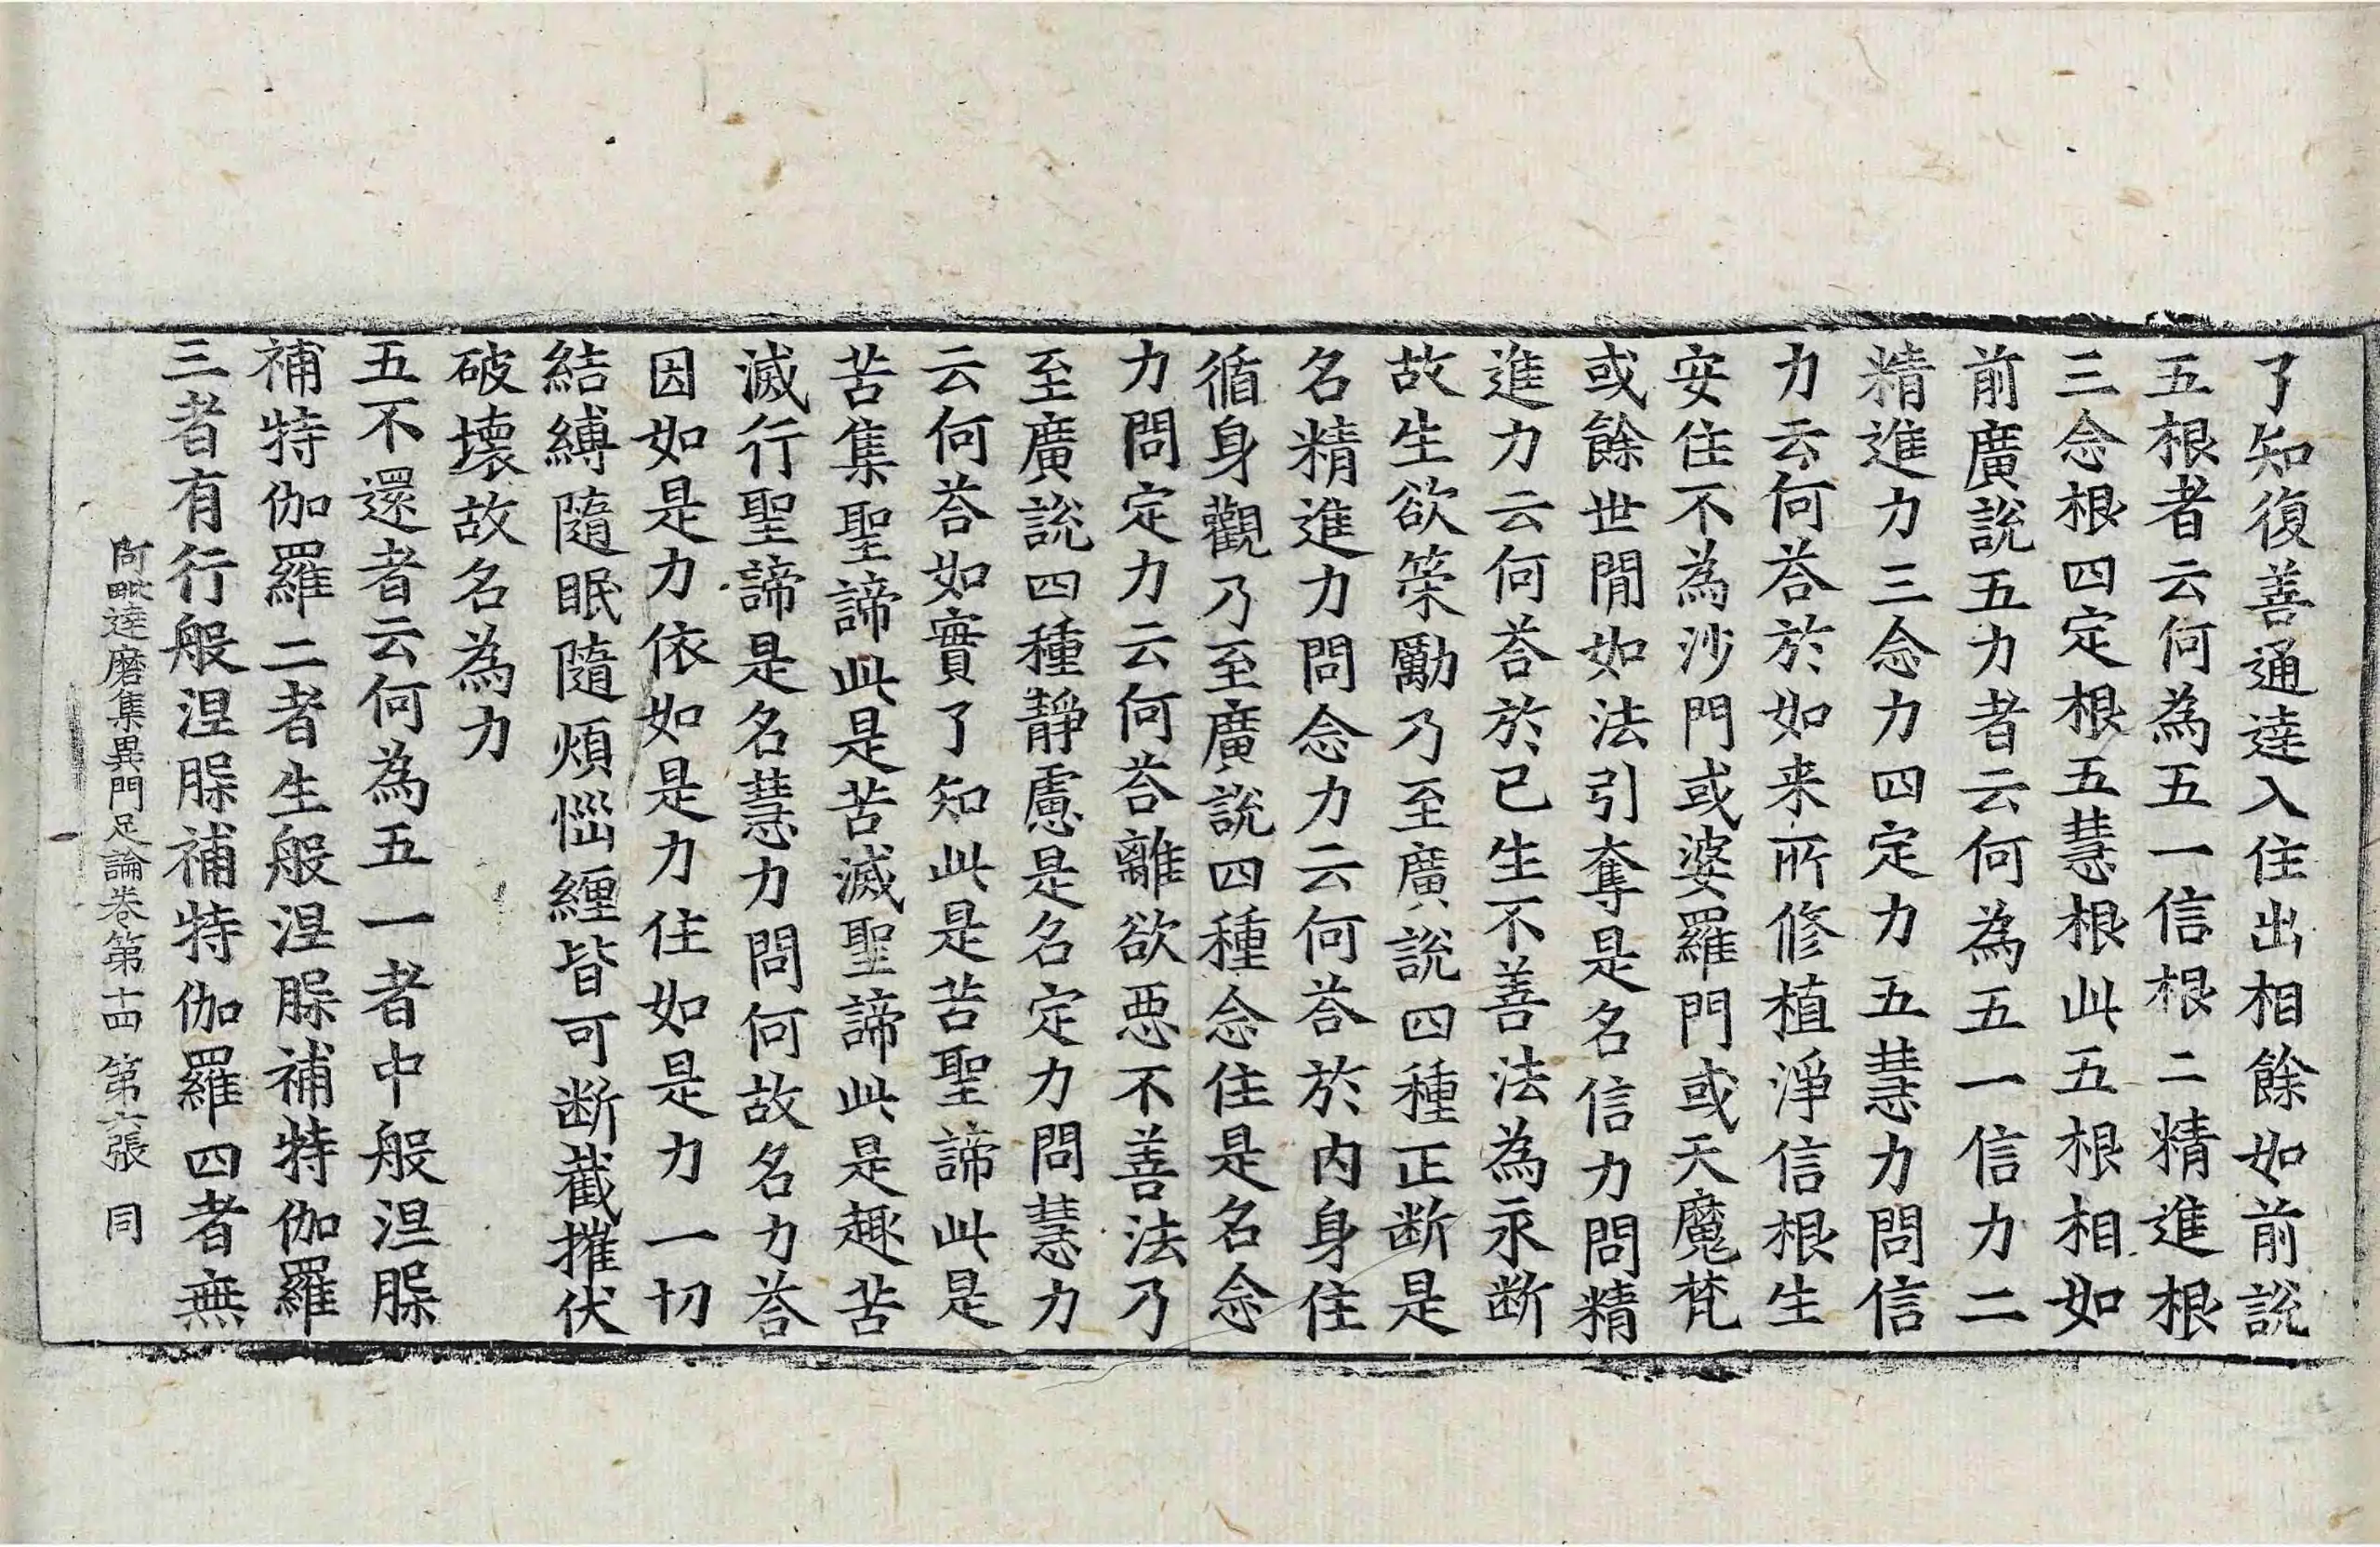 了知復善通達入住出相餘如前說
五根者云何為五一信根二精進根
三念根四定根五慧根此五根相如
前廣說五力者云何為五一信力二
精進力三念力四定力五慧力問信
力云何荅於如来所修植淨信根生
安住不為沙門或婆羅門或天魔梵
或餘世閒如法引奪是名信力問精
進力云何荅於已生不善法為永断
故生欲䇿勵乃至廣說四種正断是
名精進力問念力云何荅於內身住
循身觀乃至廣說四種念住是名念
力問定力云何荅離欲惡不善法乃
至廣說四種靜慮是名定力問慧力
云何荅如實了知此是苦聖諦此是
苦集聖諦此是苦滅聖諦此是趣苦
滅行聖諦是名慧力問何故名力荅
因如是力依如是力住如是力一切
結縛隨眠隨煩惱纏皆可断截摧伏
破壞故名為力
五不還者云何為五一者中般涅槃
補特伽羅二者生般涅槃補特伽羅
三者有行般涅槃補特伽羅四者無
阿毗達磨集異門足論卷第十四 第六張 同